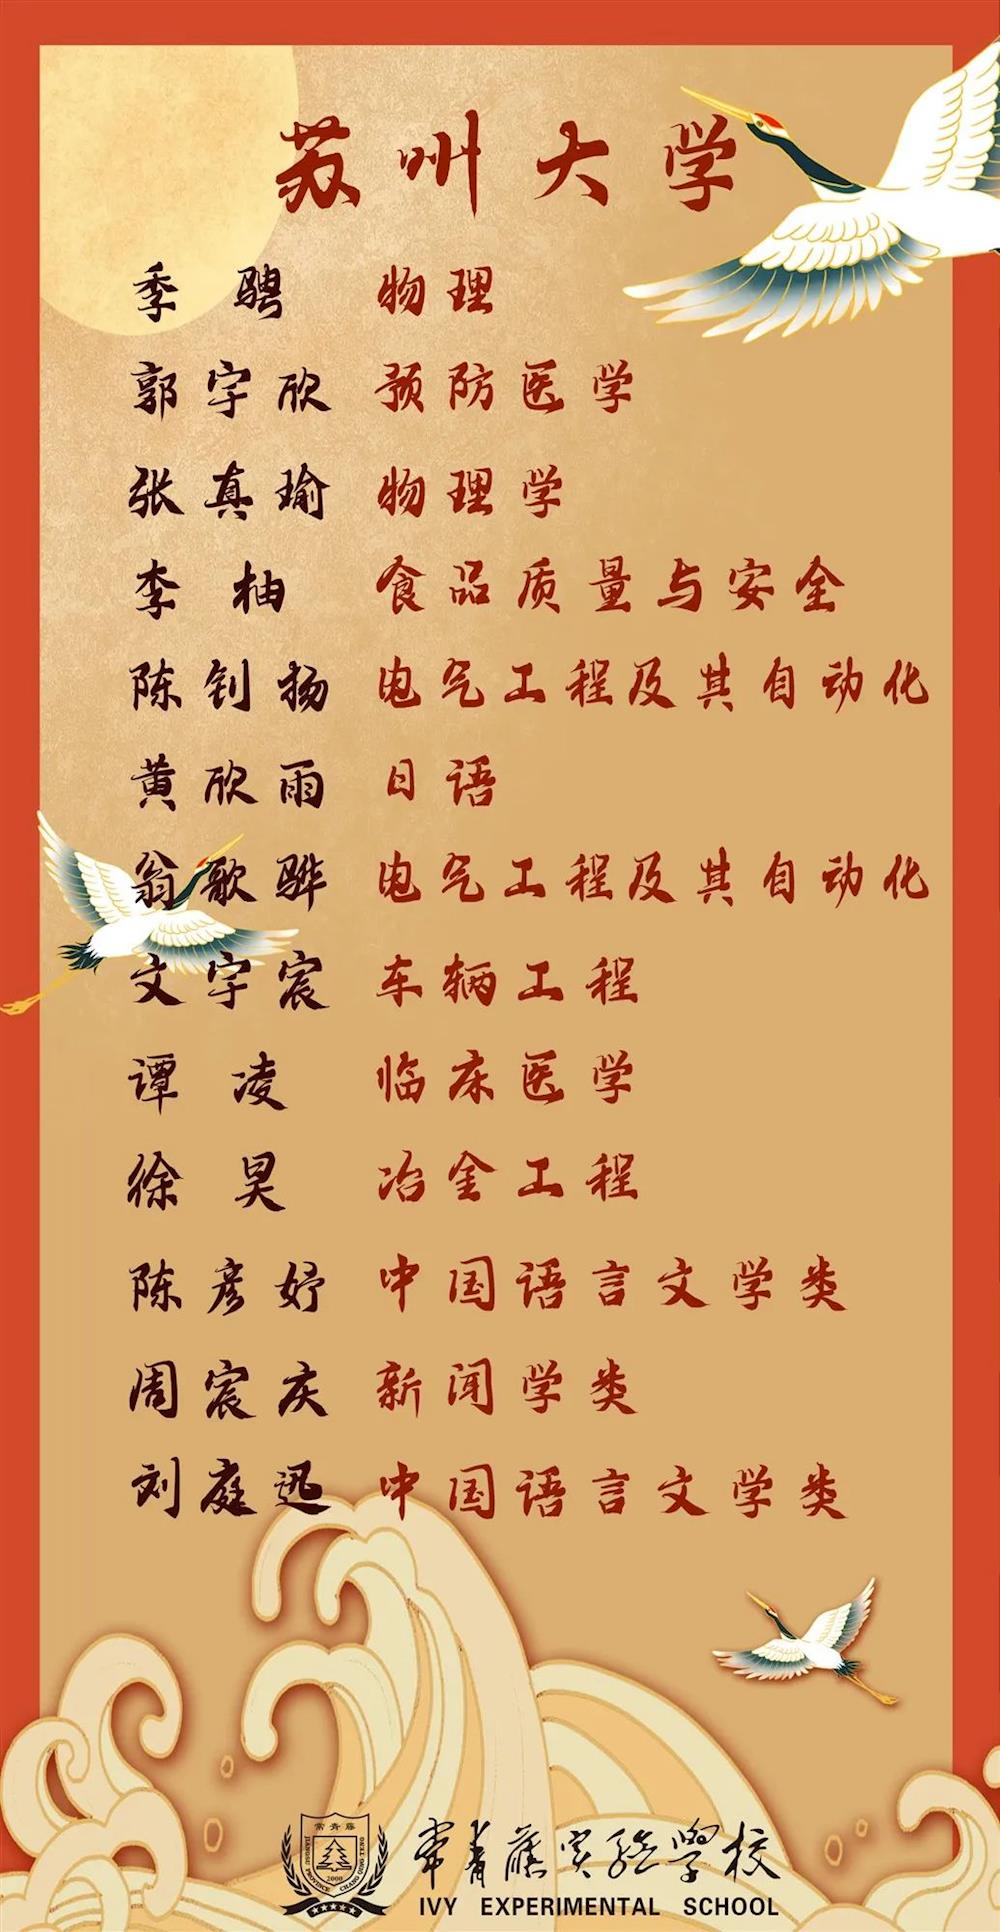 苏州大学
季骋 物理
郭宇欣 预防医学
张真瑜 物理学
李柚 食品质量与安全
陈钊扬 电气工程及其自动化
黄欣雨 日语
翁歌骅 电气工程及其自动化
文宇宸 车辆工程
谭凌 临床医学
徐昊 冶金工程
陈彦妤 中国语言文学类
周宸庆 新闻学类
刘庭迅 中国语言文学类
常青藤
2000
常青藤实验学校
IVY EXPERIMENTAL SCHOOL